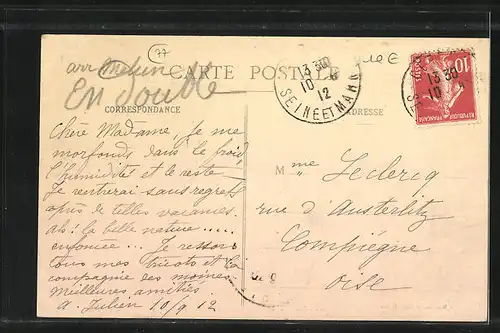 77
10 €
arr Melun
En double
CARTE POSTALE
CORRESPONDANCE
ADRESSE
13 30
10 - 9
12
SEINE ET MARNE
13 30
10
10
REPUBLIQUE FRANÇAISE
Chère Madame, je me
morfonds dans le froid
l'humidité et le reste
Je rentrerai sans regrets
après de telles vacances.
Ah! la belle nature
enfoncée... Je ressors
tous mes tricots et la
compagnie des moines
Meilleures amitiés
A. Julien 10/9 12
Mme Leclercq
rue d'Austerlitz
Compiègne
Oise